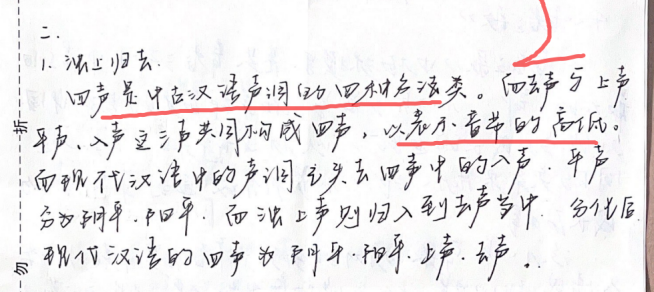 二.
1. 浊上归去.
四声是中古汉语声调的四种分类。而去声与上声
平声、入声这三声共同构成四声，以表示音节的高低。
而现代汉语中的声调已失去四声中的入声. 平声
分为阴平. 阳平. 而浊上声则归入到去声当中. 分化后
现代汉语的四声为阴平. 阳平. 上声. 去声。
折
勿